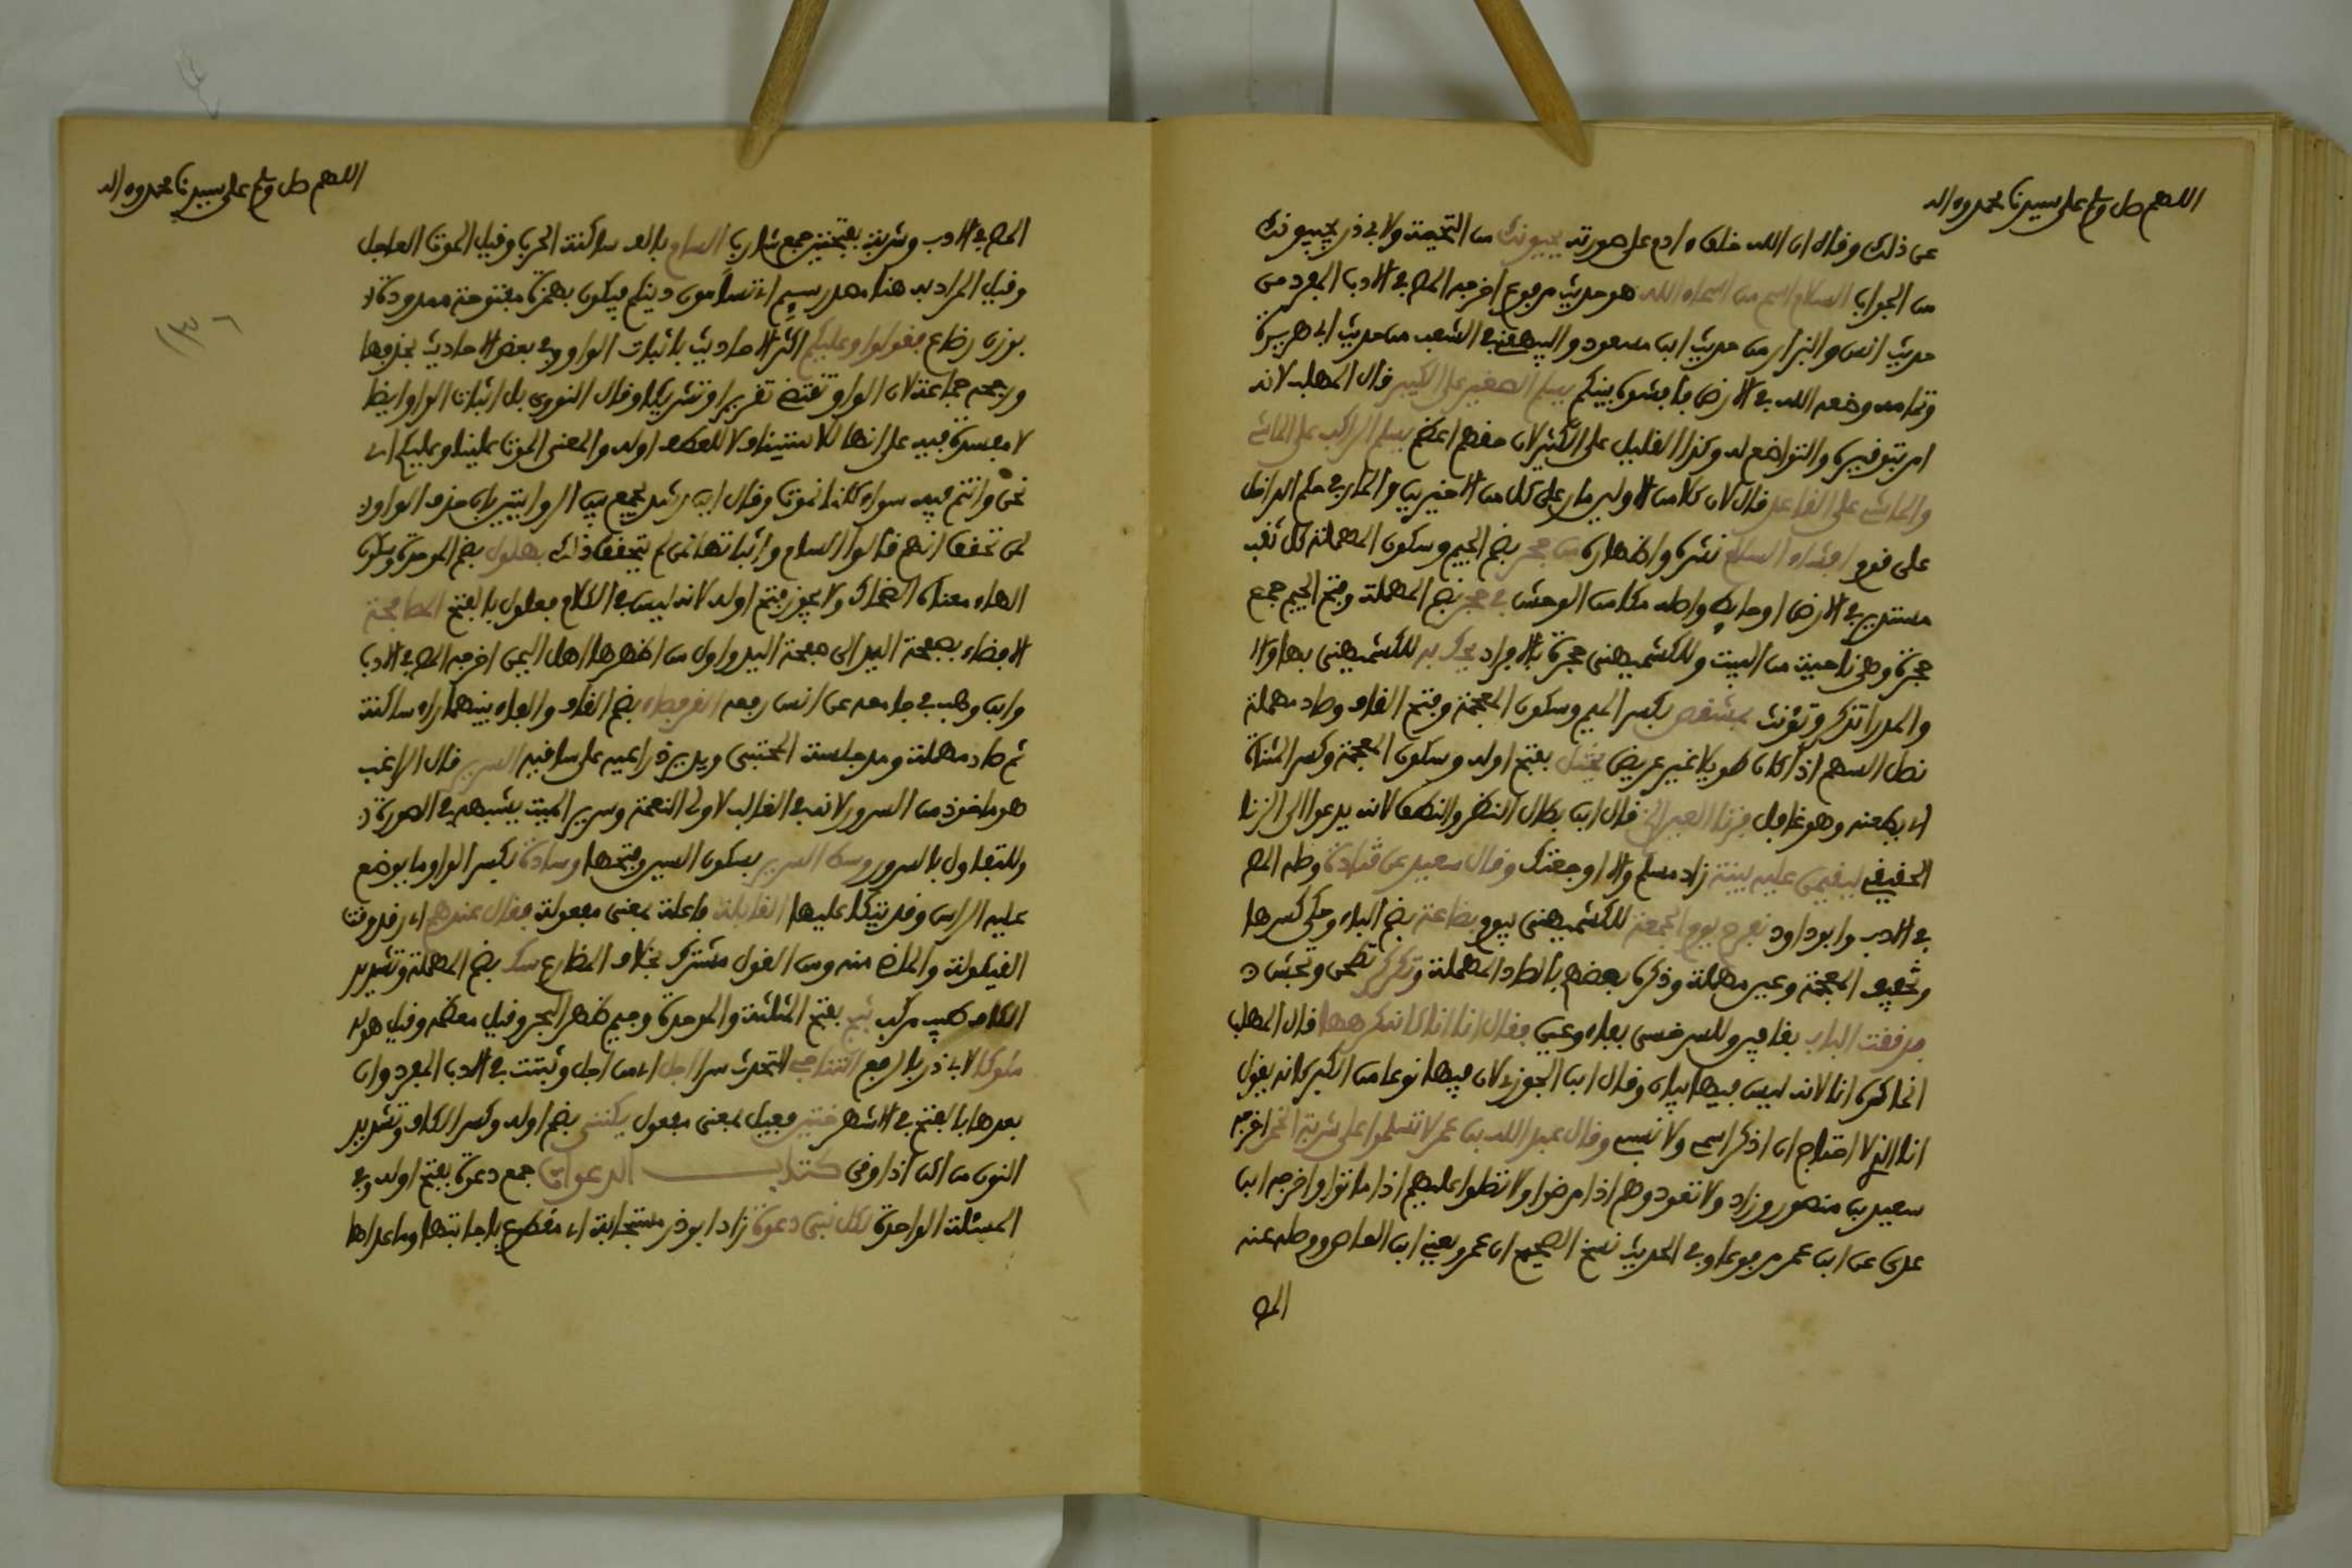 اللهم صل وسلم على سيدنا محمد وءاله
عن ذلك وقال ان الله خلق ءادم على صورته يحيونك من التحية ولابي ذر يجيبونك
من الجواب السلام اسم من اسماء الله هو حديث مرفوع اخرجه المص في الادب المفرد من
حديث انس والبزار من حديث ابن مسعود والبيهقي في الشعب من حديث ابي هريرة
وتمامه وضعه الله في الارض فافشوه بينكم يسلم الصغير على الكبير قال المهلب لانه
امر بتوقيره والتواضع له وكذا القليل على الكثير لان حقهم اعظم يسلم الراكب على الماشي
والماشي على القاعد قال لان كلا من الاولين مار على كل من الاخيرين والمار في حكم الداخل
على قوم افشاء السلام نشره واظهاره من جحر بضم الجيم وسكون المهملة كل ثقب
مستدير في الارض او حايط واصله مكامن الوحش في حجر بضم المهملة وفتح الجيم جمع
حجرة وهي ناحية من البيت وللكشميهني حجرة بالافراد يحك به للكشميهني بها والا
والمدرا تذكر وتؤنث بمشقص بكسر الميم وسكون المعجمة وفتح القاف وصاد مهملة
نصل السهم اذا كان طويلا غير عريض يختل بفتح اوله وسكون المعجمة وكسر المثناة
اي يطعنه وهو غافل فزنا العين الخ قال ابن بطال النظر والنطق لانه يدعوا الى الزنا
الحقيقي ليقيمن عليه بينة زاد مسلم والا اوجعتك وقال سعيد عن قتادة وصله المص
في الادب وابو داود نفرح بيوم الجمعة للكشميهني بيوم بضاعة بضم الباء وحكي كسرها
وتخفيف المعجمة وعين مهملة وذكره بعضهم بالصاد المهملة وتكركر تطحن وتجش
فدققت الباب بقافين وللسرخسي بفاء وعين فقال انا انا كانه كرهها قال المهلب
انما كره انا لانه ليس فيها بيان وقال ابن الجوزي لان فيها نوعا من الكبر كانه يقول
انا الذي لا احتاج ان اذكر اسمي ولا نسبي وقال عبد الله بن عمر لا تسلموا على شربة الخمر اخرجه
سعيد بن منصور وزاد ولا تعودوهم اذا مرضوا ولا تصلوا عليهم اذا ماتوا واخرجه ابن
عدي عن ابن عمر مرفوعا وفي الحديث نسخ الصحيح ان عمرو يعني ابن العاص ووصله عنه
المص
اللهم صل وسلم على سيدنا محمد وءاله
المص في الادب وشربة بفتحتين جمع شارب السام بالف ساكنة الحرب وقيل الموت العاجل
وقيل المراد به هنا مصدر سيم اي تسأمون دينكم فيكون بهمزة مفتوحة ممدودة
بوزن رضاع فقولوا وعليكم اكثر الاحاديث باثبات الواو وفي بعض الاحاديث بحذفها
ورجحه جماعة لان الواو تقتضي تقريرا وتشريكا وقال النووي بل اثبات الواو ايضا
لا مفسدة فيه على انها للاستيناف لا للعطف اوله والمعنى الموت علينا وعليكم اي
نحن وانتم فيه سواء كلنا نموت وقال ابن رشد يجمع بين الروايتين بان حذف الواو
لمن تحقق انهم قالوا السام واثباتها لمن لم يتحقق ذلك بهلول بضم الموحدة وسكون
الهاء معناه الضحاك ولا يجوز فتح اوله لانه ليس في الكلام فعلول بالفتح المصافحة
الافضاء بصفحة اليد الى صفحة اليد واول من اظهرها اهل اليمن اخرجه المص في الادب
وابن وهب في جامعه عن انس رفعه القرفصاء بضم القاف والفاء بينهما راء ساكنة
ثم صاد مهملة ومد جلسة المحتبي ويدير ذراعيه على ساقيه السرير قال الراغب
هو ماخوذ من السرور لانه في الغالب لاولي النعمة وسرير الميت يشبهه في الصورة
وللتفاول بالسرور وسط السرير بسكون السين وفتحها وسادة بكسر الواو ما يوضع
عليه الراس وقد يتكا عليها القايلة فاعلة بمعنى مفعولة فقال عندهم اي رقد وقت
القيلولة والماضي منه ومن القول مشترك بخلاف المضارع سك بضم المهملة وتشديد
الكاف طيب مركب ثبج بفتح المثلثة والموحدة وجيم ظهر البحر وقيل معظمه وقيل هوله
ملوكا لابي ذر بالرفع التناجي التحدث سرا اجل اي من اجل وثبتت في الادب المفرد وان
بعدها بالفتح في الاشهر ختين فعيل بمعنى مفعول يكنني بضم اوله وكسر الكاف وتشديد
النون من اكن اذا وقى كتاب الدعوات جمع دعوة بفتح اوله وهي
المسئلة الواحدة لكل نبي دعوة زاد ابو ذر مستجابة اي مقطوع باجابتها وما عداها